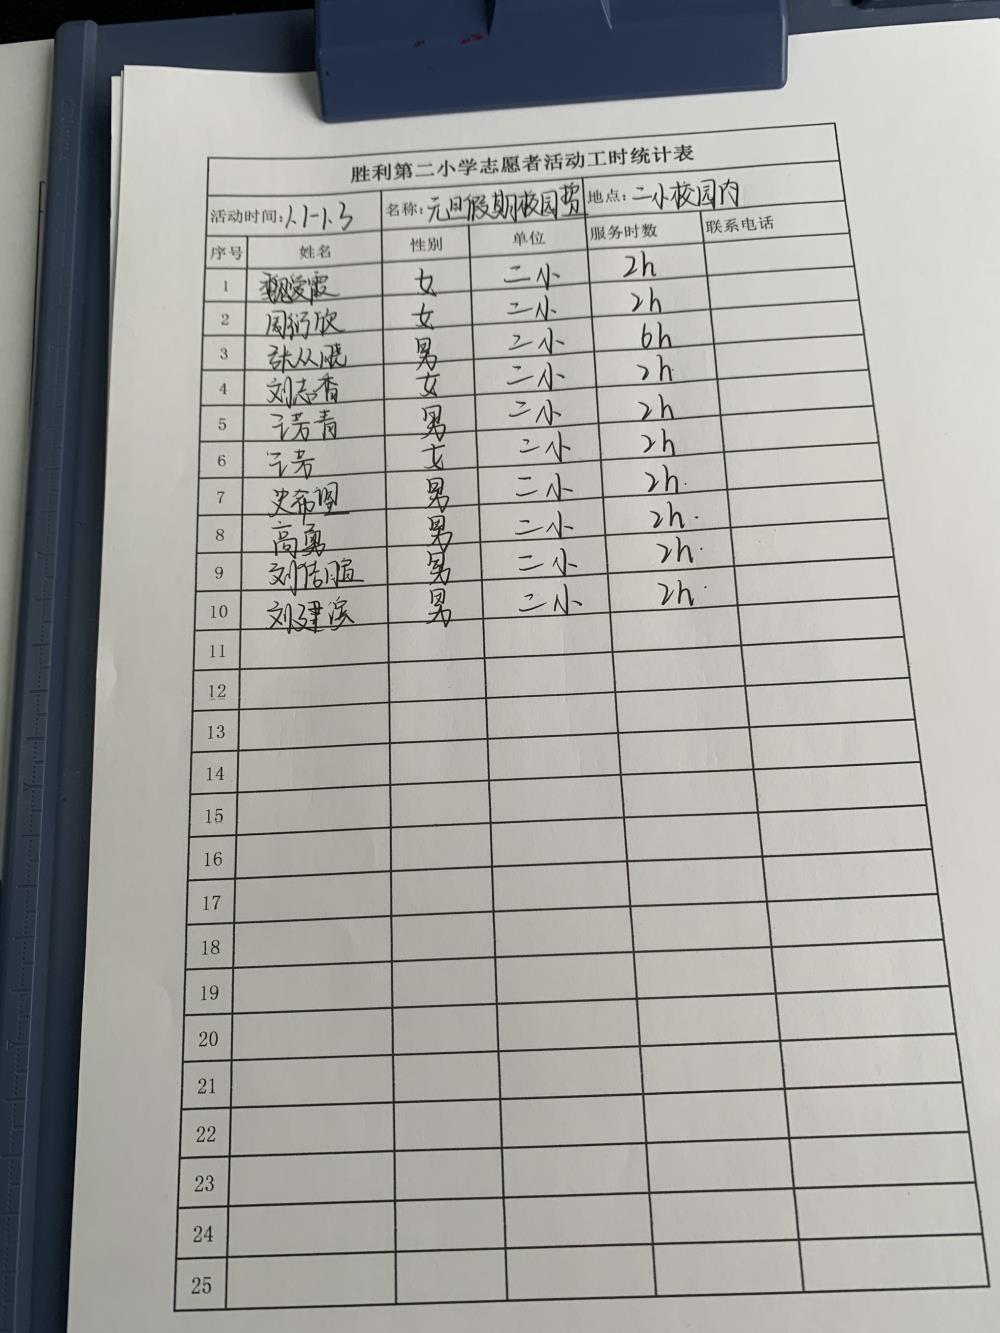 胜利第二小学志愿者活动工时统计表
活动时间:1.1-1.3 名称:元旦假期校园 地点:二小校园内
序号 姓名 性别 单位 服务时数 联系电话
1 魏爱霞 女 二小 2h
2 周衍欣 女 二小 2h
3 张从晓 男 二小 6h
4 刘志香 女 二小 2h
5 于芳青 男 二小 2h
6 于芳 女 二小 2h
7 史希国 男 二小 2h.
8 高勇 男 二小 2h.
9 刘 男 二小 2h.
10 刘建滨 男 二小 2h.
11
12
13
14
15
16
17
18
19
20
21
22
23
24
25